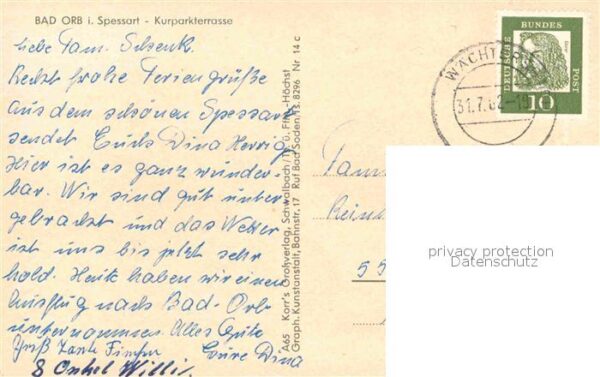 BAD ORB i. Spessart - Kurparkterrasse
Liebe Fam. Schenk.
Recht frohe Feriengrüße
aus dem schönen Spessart
sendet Euch Dina Herrig
Hier ist es ganz wunder-
bar. Wir sind gut unter-
gebracht und das Wetter
ist uns bis jetzt sehr
hold. Heute haben wir einen
Ausflug nach Bad-Orb
unternommen. Alles Gute
Gruß Tante
Eure Dina
& Onkel Willi.
A65 Korr's Großverlag, Schwalbach/Ts. ü. Ffm.-Höchst
Graph. Kunstanstalt, Bahnstr. 17 Ruf Bad Soden/Ts. 8296 Nr 14 c
31.7.62-19
DEUTSCHE
BUNDES
POST
10
Fam
55
privacy protection
Datenschutz